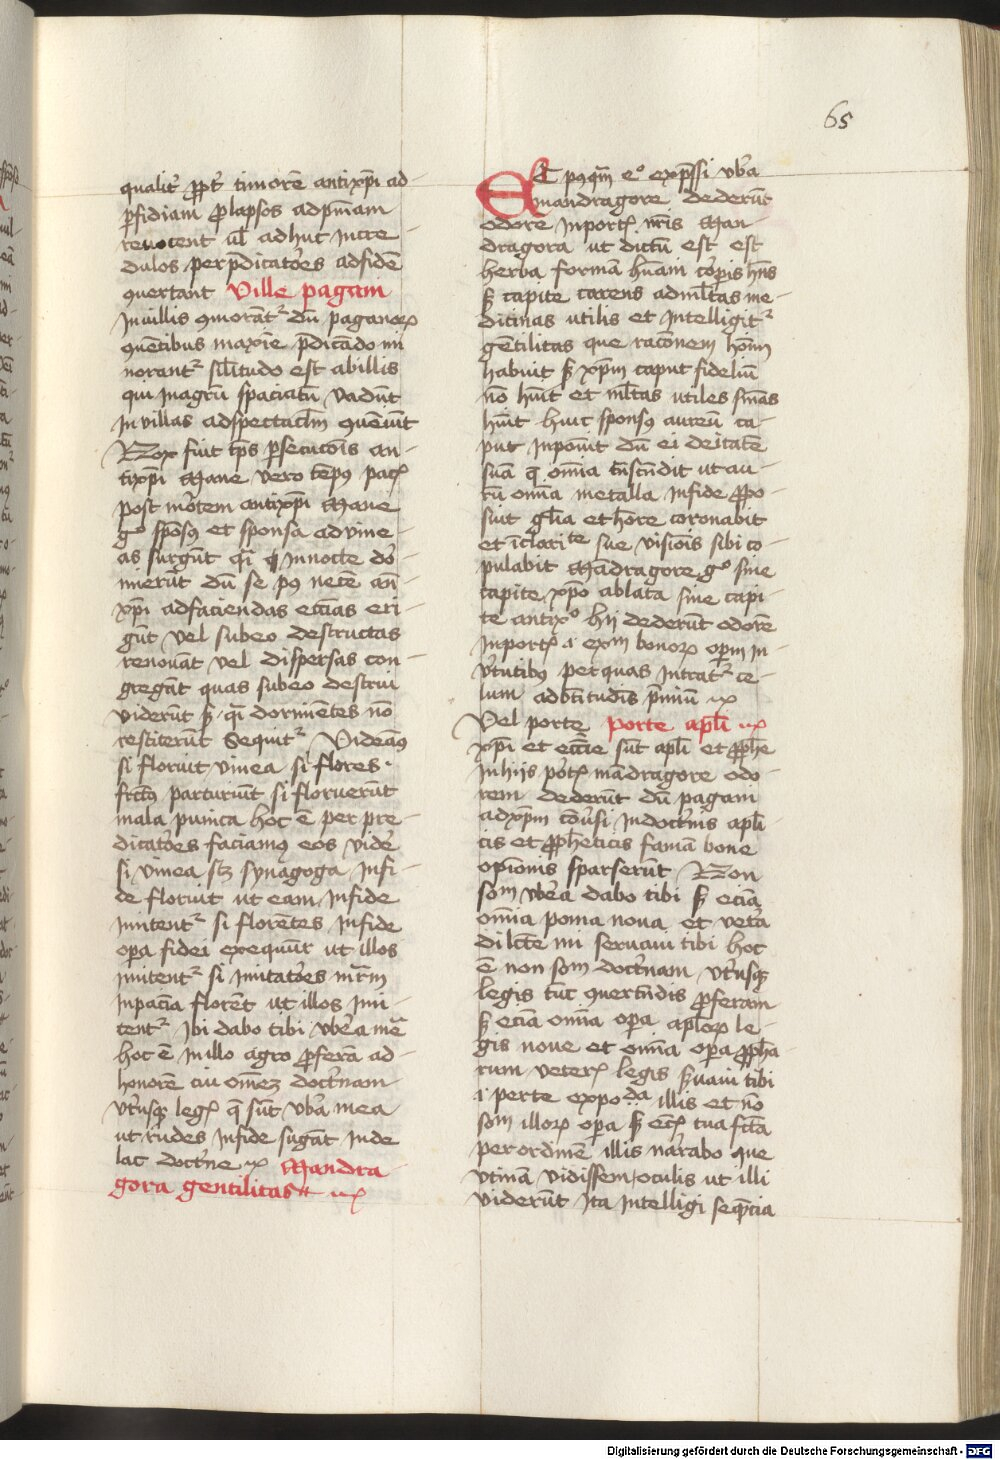 65
qualit᷑ ꝓpt᷑ timorē antixp̄i ad-
ꝑfidiam ꝓlapsos ad pn̄iam
reuocent ul̄ adhuc incre-
dulos per p̄dicatōes ad fidē
ꝯuertant Ville pagani
In uillis ꝯmorāt᷑ dū paganoꝝ
ꝯuētibus maxīe p̄dicādo mi
norant᷑ Sīlitudo est ab illis
qui in agrū spaciatū vadūt
in villas ad spectaclm̄ ꝯueniūt
Nox fuit tp̄s ꝑsecucōis an-
tixp̄i Mane vero tēpꝰ pacꝭ
post mōtem antixp̄i Mane
gͦ spōsꝰ et sponsa ad vine-
as surgūt qī in nocte dor-
mierūt dū se pꝰ necē an-
xp̄i ad faciendas ecciās eri-
gūt vel sub eo destructas
renouāt vel dispersas con-
gregāt quas sub eo destrui
viderūt sꝫ qī dormiētes nō
restiterūt Sequit᷑ Videamꝰ
si floruit vinea si flores
fructꝰ parturiūt si floruerūt
mala punica hoc ē per pre-
dicatōes faciamꝰ eos vidē
si vinea scꝫ synagoga in fi-
de floruit ut eam in fide
imitent᷑ si florētes in fide
opa fidei exequūt᷑ ut illos
imitent᷑ si imitatōes mr̄m
in pacīa florēt ut illos imi-
tent᷑ Ibi dabo tibi vbera mea
hoc ē in illo agro ꝓferā ad
honorē tui omēꝫ doctrnam
vtriusqꝫ legꝭ q̄ sūt vbera mea
ut rudes in fide sugāt inde
lac doctrne Mandra
gora gentilitas
Et pꝰqm̄ eͦ expressi vbera
mandragore dederūt
odorē in portꝭ nr̄is Man-
dragora ut dictū est est
herba formā hūani corpis hn̄s
sꝫ capite carens ad ml̄tas me-
dicinas utilis et intelligit᷑
gētilitas que racōnem hoīm
habuit sꝫ xp̄m caput fideliū
nō huīt et ml̄tas utiles snīas
huīt huic sponsꝰ aureū ca-
put inponit dū ei deitatē
suā q̄ omīa trn̄scendit ut au-
rū omīa metalla in fide ꝓpo-
suit gl̄ia et honore coronabit
et in claritate sue visiōis sibi co-
pulabit Mādragore gͦ sine
capite xp̄o ablata sine capi-
te antixͦ hij dederūt odorē
in portꝭ .i. exm̄ bonoꝝ opm̄ in
v᷑tutibꝰ per quas intrat᷑ ce-
lum ad obtītudīs p̄miū
Vel porte Porte apl̄i
xp̄i et eccie sūt apl̄i et ꝓphe
In hijs portꝭ mādragore odo-
rem dederūt dū pagani
ad xp̄m cōuersi in doctrīs apl̄i
cis et ꝓpheticis famā bone
opīonis sparserūt Non
solm vbera dabo tibi sꝫ eciā
omīa poma noua et vetera
dilcte mi seruaui tibi hoc
ē non solm doctrnam vtriusqꝫ
legis tūc ꝯuertēdis ꝓferam
sꝫ eciā omīa opa apl̄oꝝ le-
gis noue et omīa opa ꝓpha-
rum veterꝭ legis seruaui tibi
.i. per te exponēda illis et nō
solm illoꝝ opa sꝫ eciā tua fcā
per ordinē illis narrabo que
vtinā vidissem oculis ut illi
viderūt Ita intelligi sequēcia
Digitalisierung gefördert durch die Deutsche Forschungsgemeinschaft - DFG